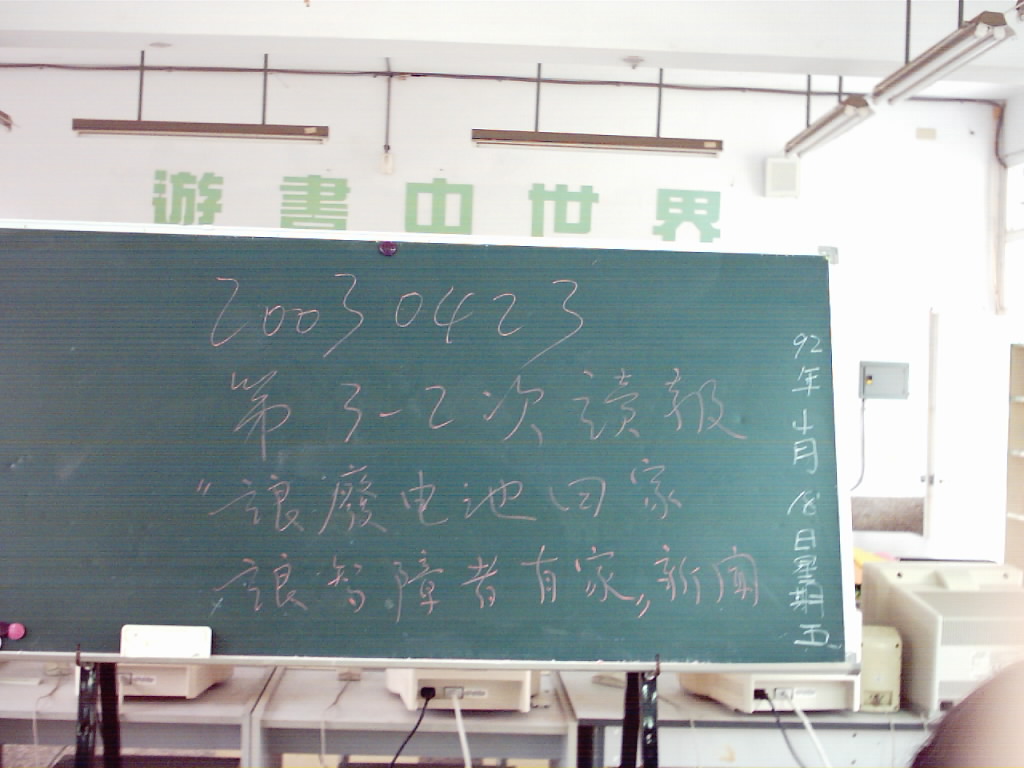 遊書中世界
20030423
第3-2次讀報
"讓廢电池回家
讓智障者有家"新聞
92年4月18日星期五